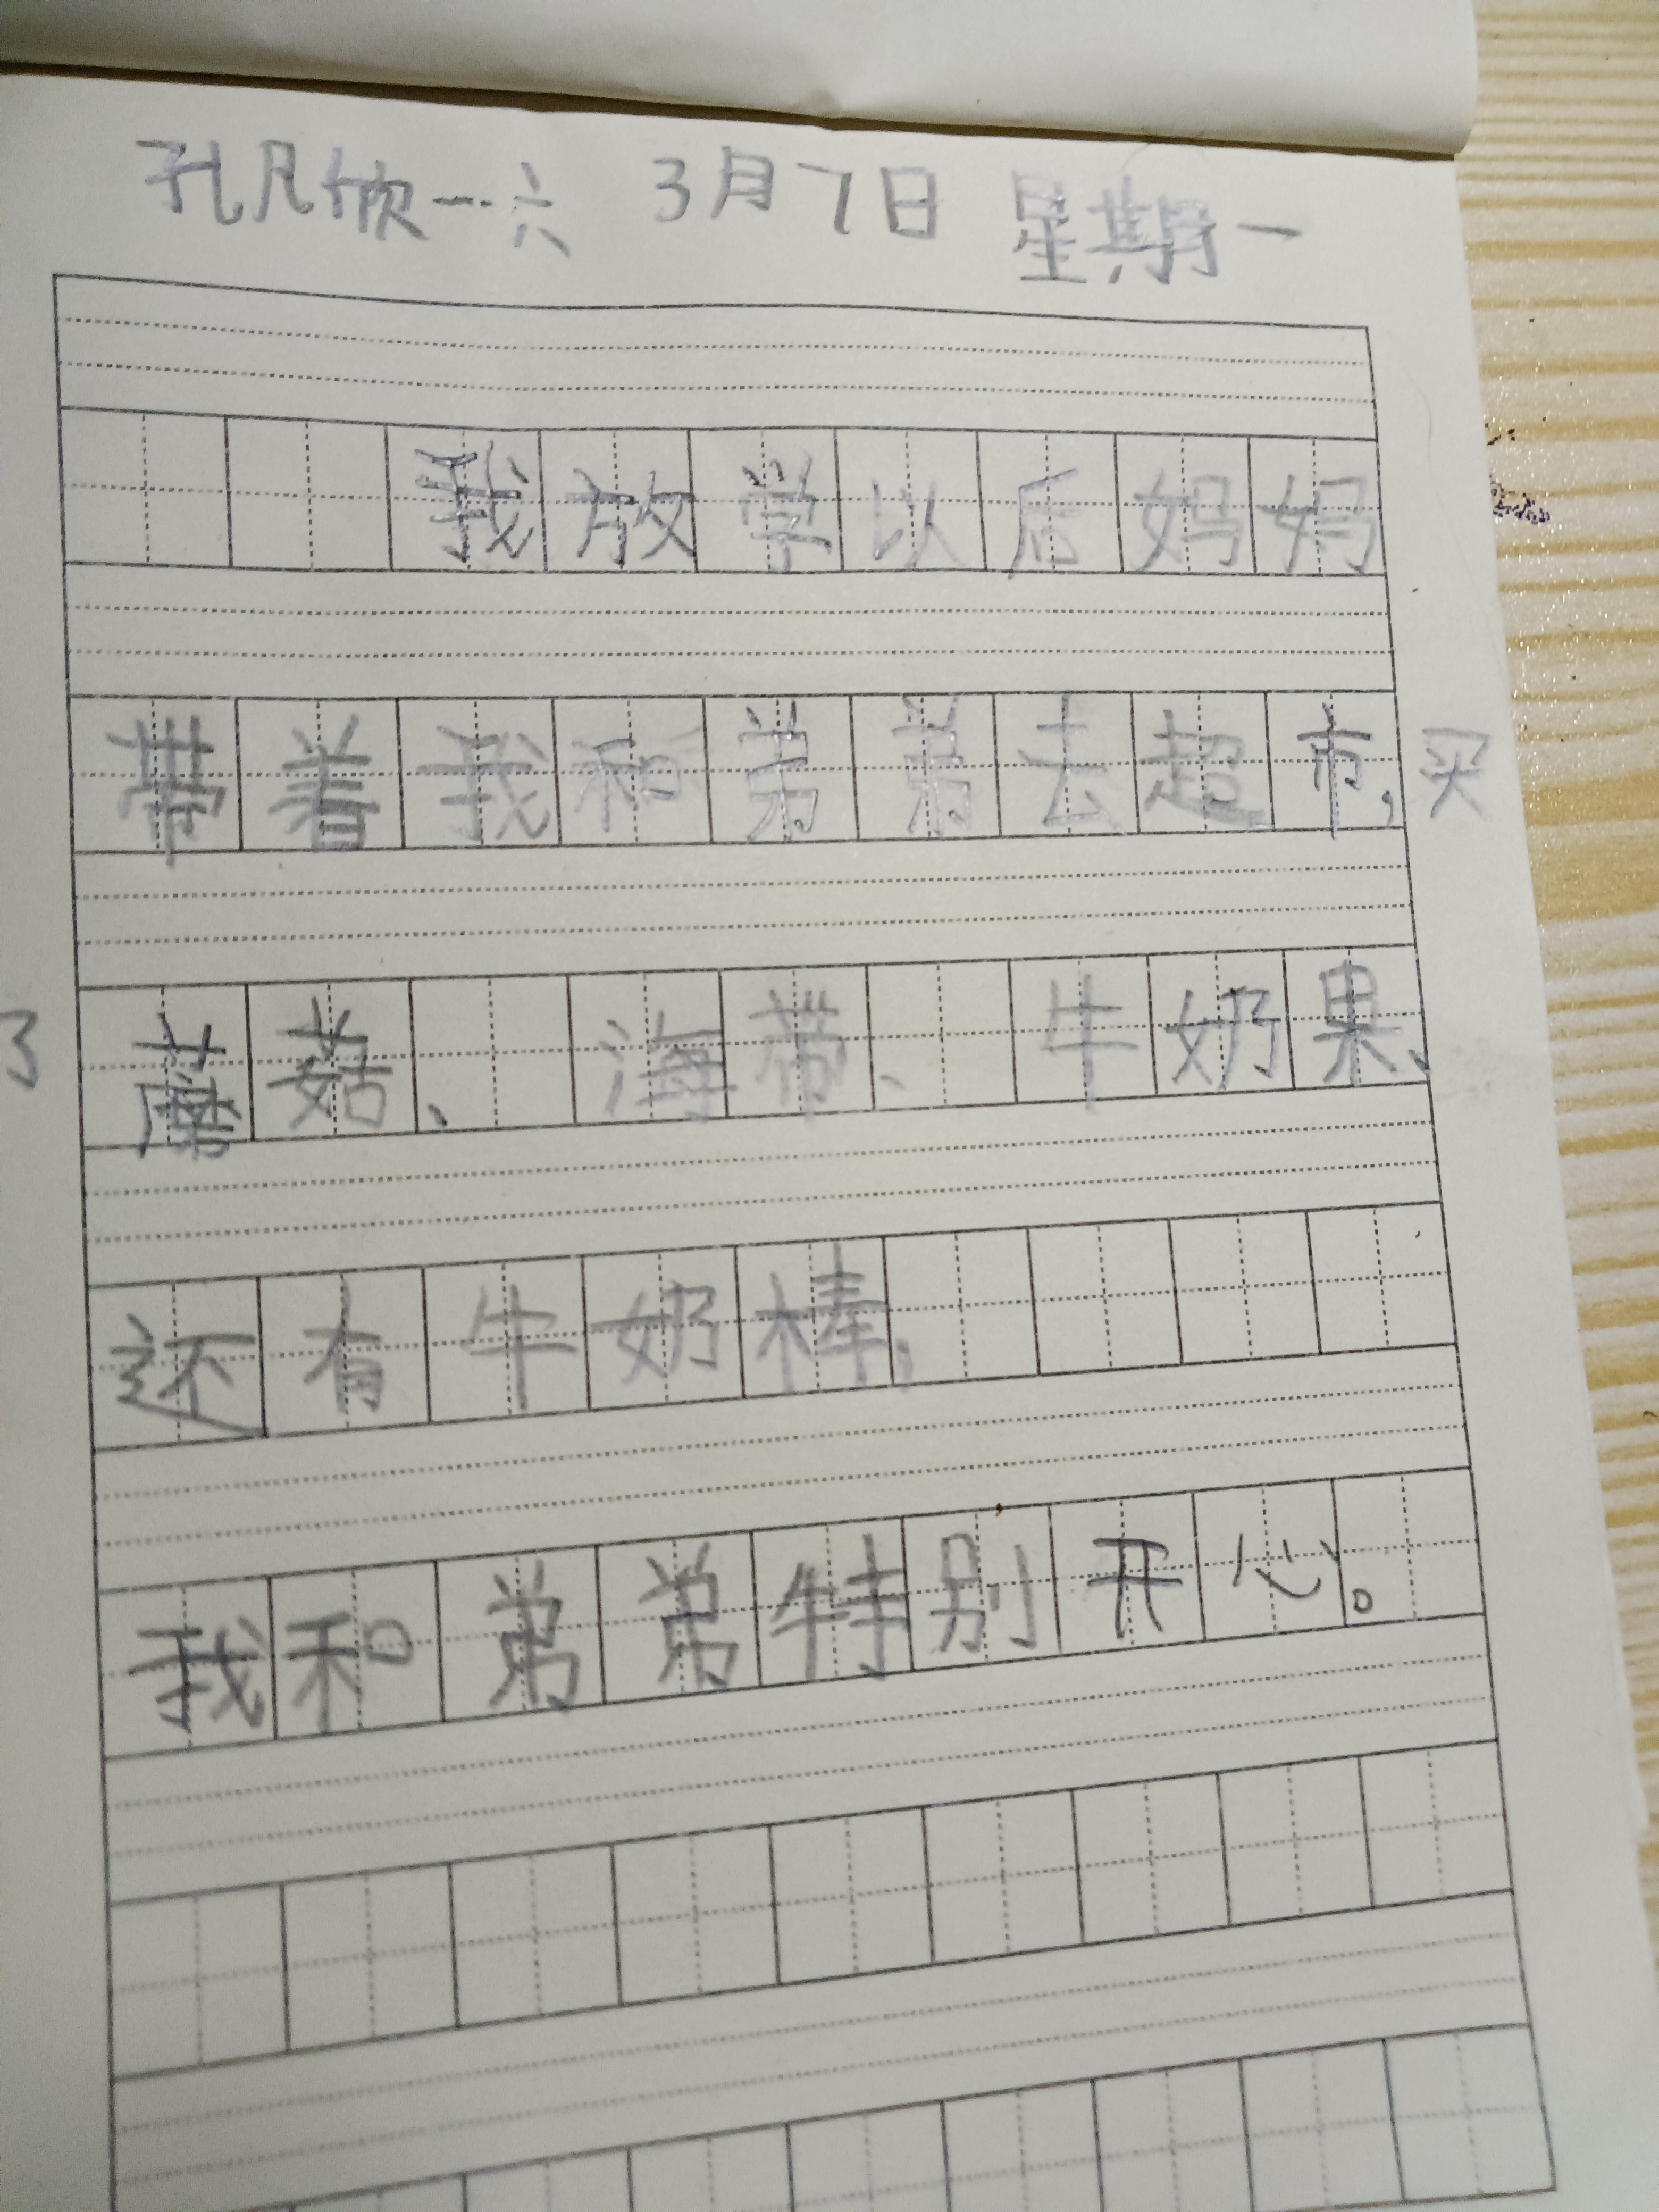 孔凡欣一.六 3月7日 星期一
我放学以后妈妈
带着我和弟弟去超市,买
了蘑菇、海带、牛奶果、
还有牛奶棒,
我和弟弟特别开心。